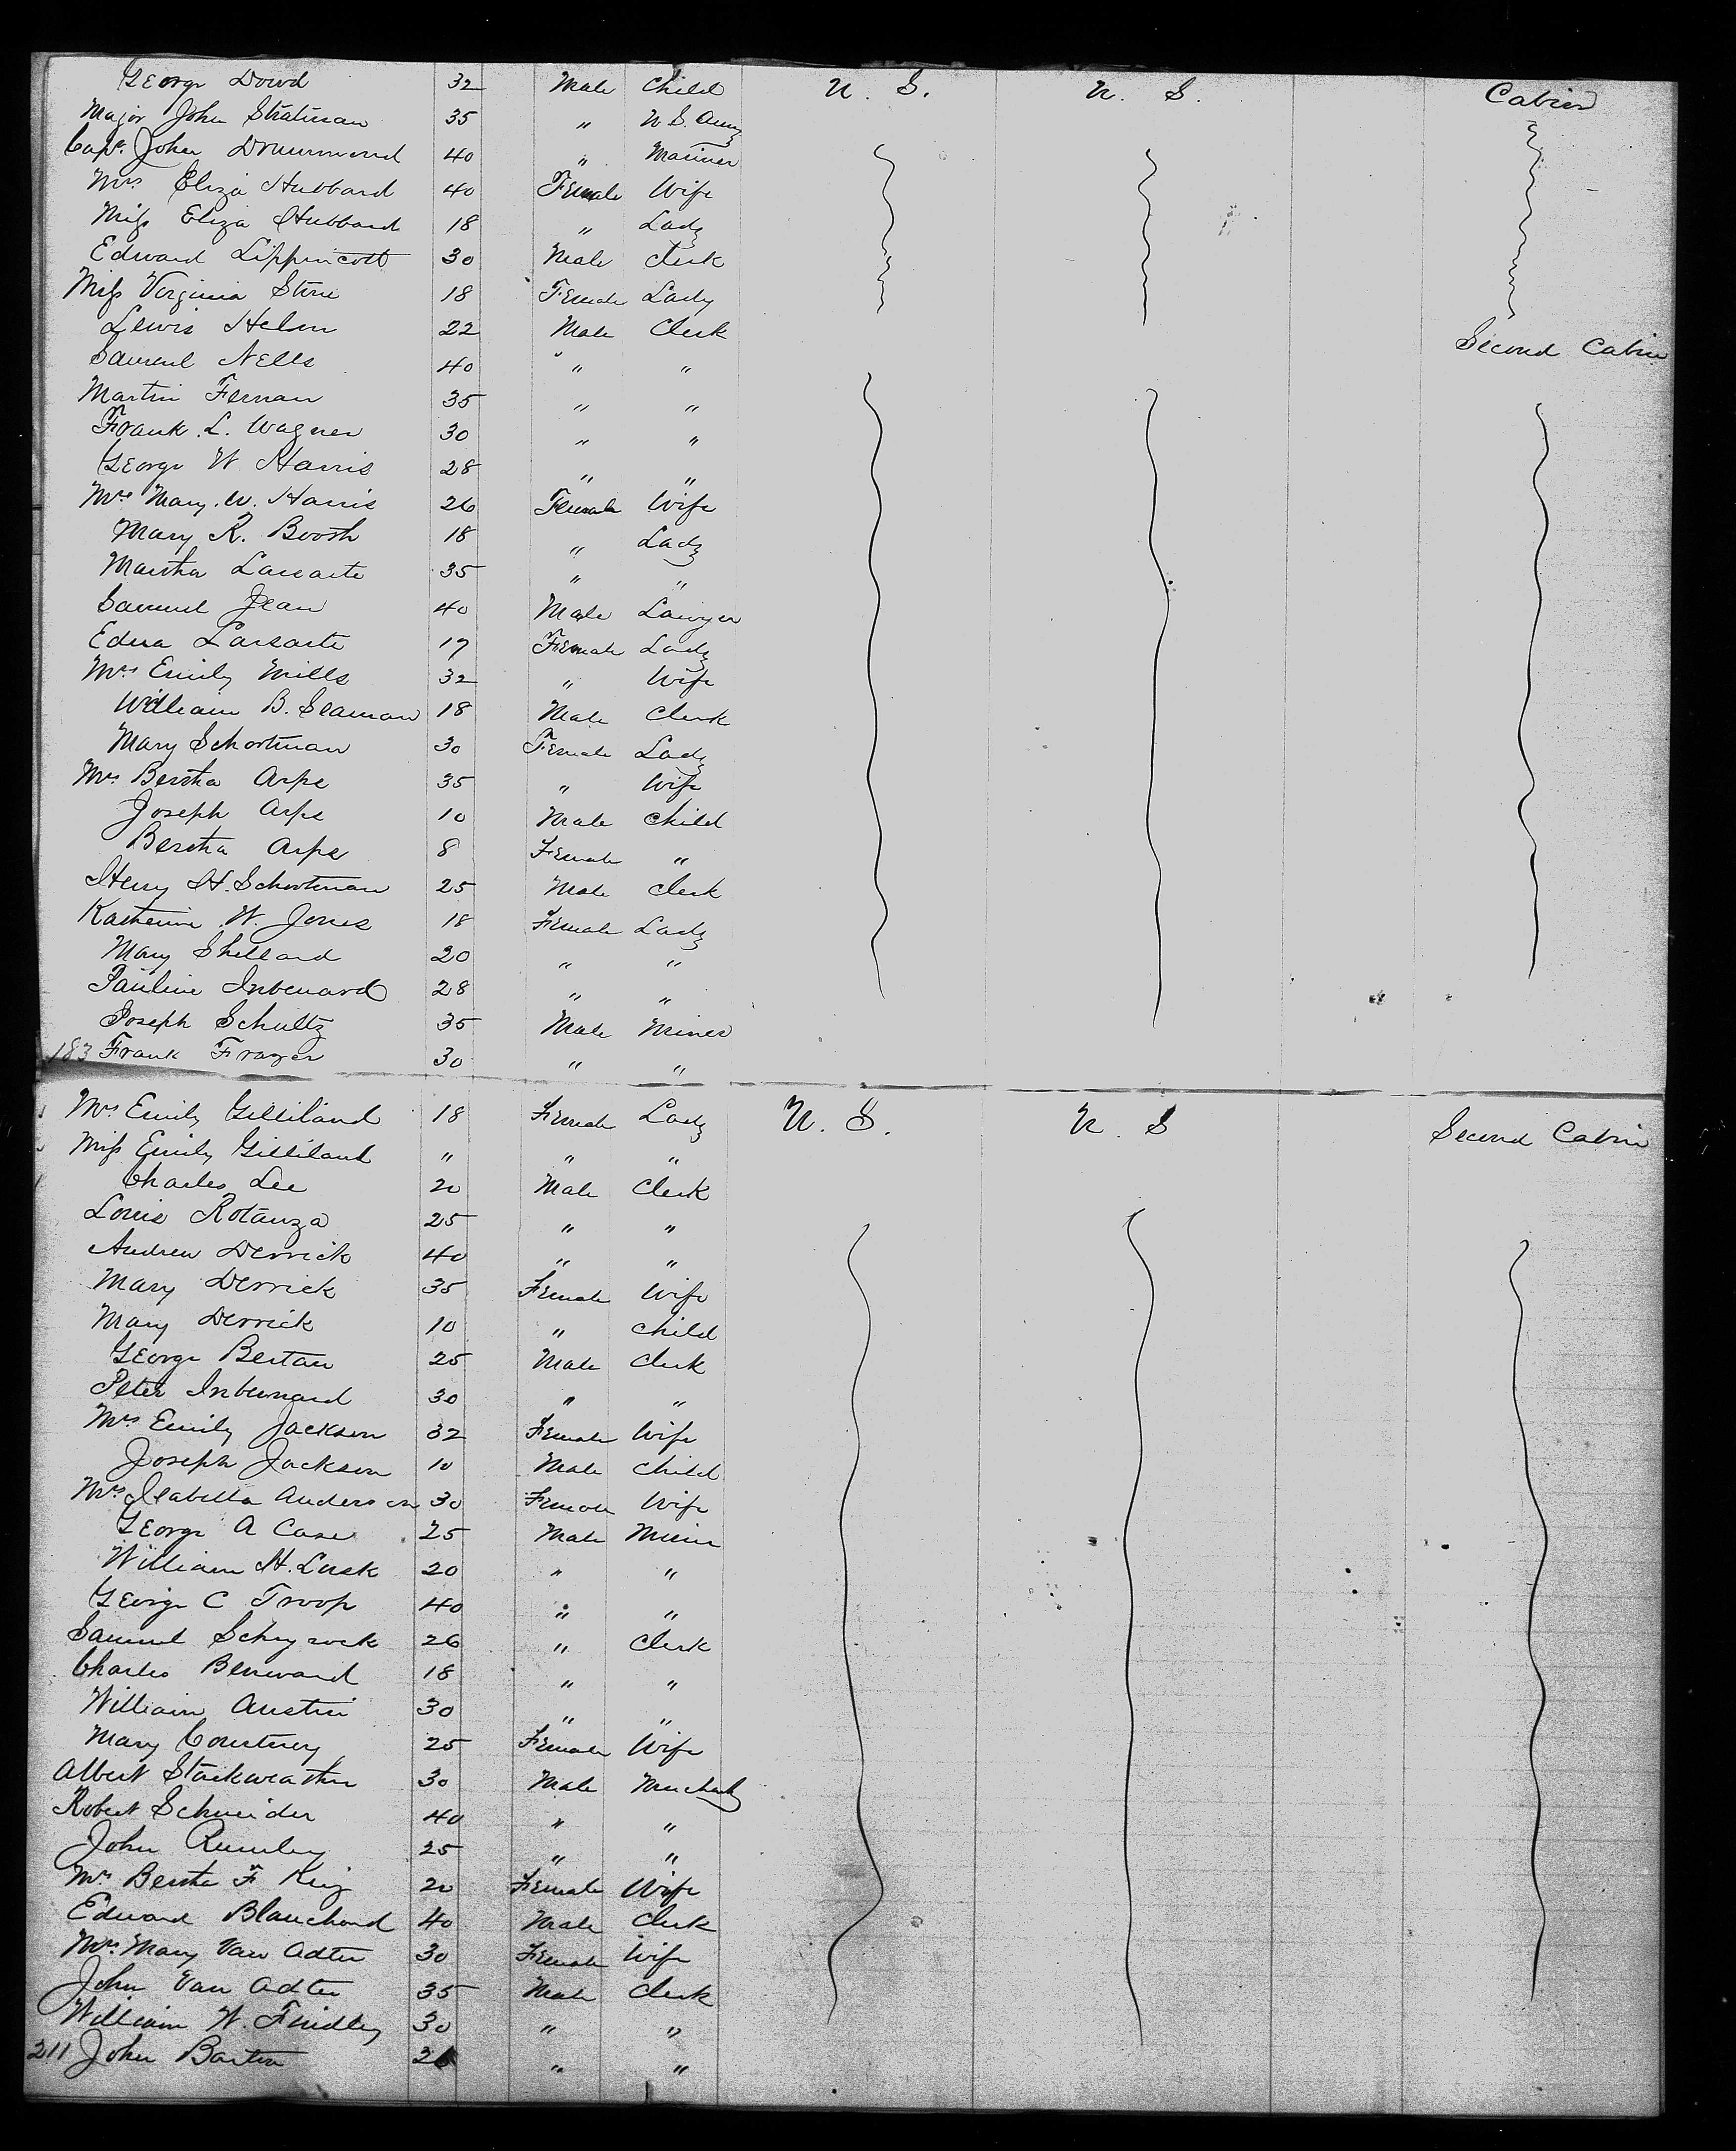 George Dowd 32 Male Child U. S. U. S. Cabin
Major John Stratman 35 " U S. Army
Capt. John Drummond 40 " Mariner
Mrs Eliza Hubbard 40 Female Wife
Miss Eliza Hubbard 18 " Lady
Edward Lippincott 30 Male Clerk
Miss Virginia Stone 18 Female Lady
Lewis Helm 22 Male Clerk Second Cabin
Samuel Nells 40 " "
Martin Fernan 35 " "
Frank. L. Wagner 30 " "
George W Harris 28 " "
Mrs Mary. W. Harris 26 Female Wife
Mary R. Booth 18 " Lady
Martha Lassarte 35 " "
Samuel Jean 40 Male Lawyer
Edna Lassarte 17 Female Lady
Mrs Emily Mills 32 " Wife
William B. Seaman 18 Male Clerk
Mary Schortman 30 Female Lady
Mrs Bertha Arps 35 " Wife
Joseph Arps 10 Male Child
Bertha Arps 8 Female "
Henry H. Schortman 25 Male Clerk
Katherine W. Jones 18 Female Lady
Mary Shellard 20 " "
Pauline Inbenard 28 " "
Joseph Schultz 35 Male Miner
183 Frank Frazer 30 " "
Mrs Emily Gilliland 18 Female Lady U. S. U. S Second Cabin
Miss Emily Gilliland " " "
Charles Lee 20 Male Clerk
Louis Rotanza 25 " "
Andrew Derrick 40 " "
Mary Derrick 35 Female Wife
Mary Derrick 10 " Child
George Bertan 25 Male Clerk
Peter Inbernard 30 " "
Mrs Emily Jackson 32 Female Wife
Joseph Jackson 10 Male Child
Mrs Isabella Anderson 30 Female Wife
George A Case 25 Male Miner
William H. Lusk 20 " "
George C Troop 40 " "
Samuel Schryrock 26 " Clerk
Charles Benward 18 " "
William Austin 30 " "
Mary Courtney 25 Female Wife
Albert Starkweather 30 Male Merchant
Robert Schneider 40 " "
John Rumley 25 " "
Mrs Bertha F King 20 Female Wife
Edward Blanchard 40 Male Clerk
Mrs Mary Van Adter 30 Female Wife
John Van Adter 35 Male Clerk
William W. Findley 30 " "
211 John Barton " "